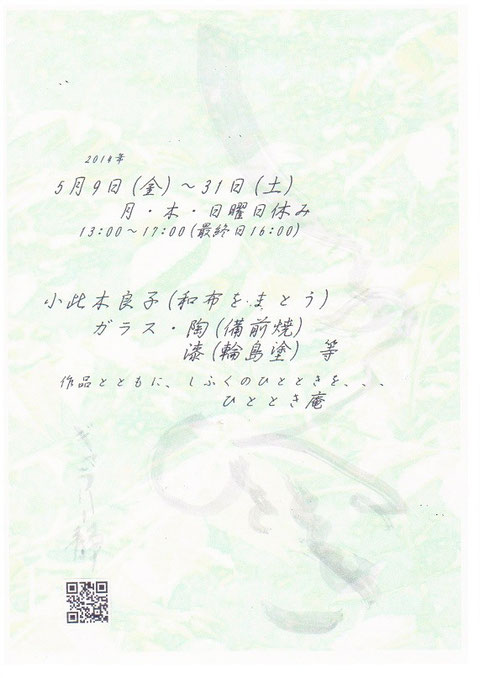 2014年
5月9日(金)～31日(土)
月・木・日曜日休み
13:00～17:00(最終日16:00)
小此木良子(和布をまとう)
ガラス・陶(備前焼)
漆(輪島塗) 等
作品とともに、しふくのひとときを、、、
ひととき庵